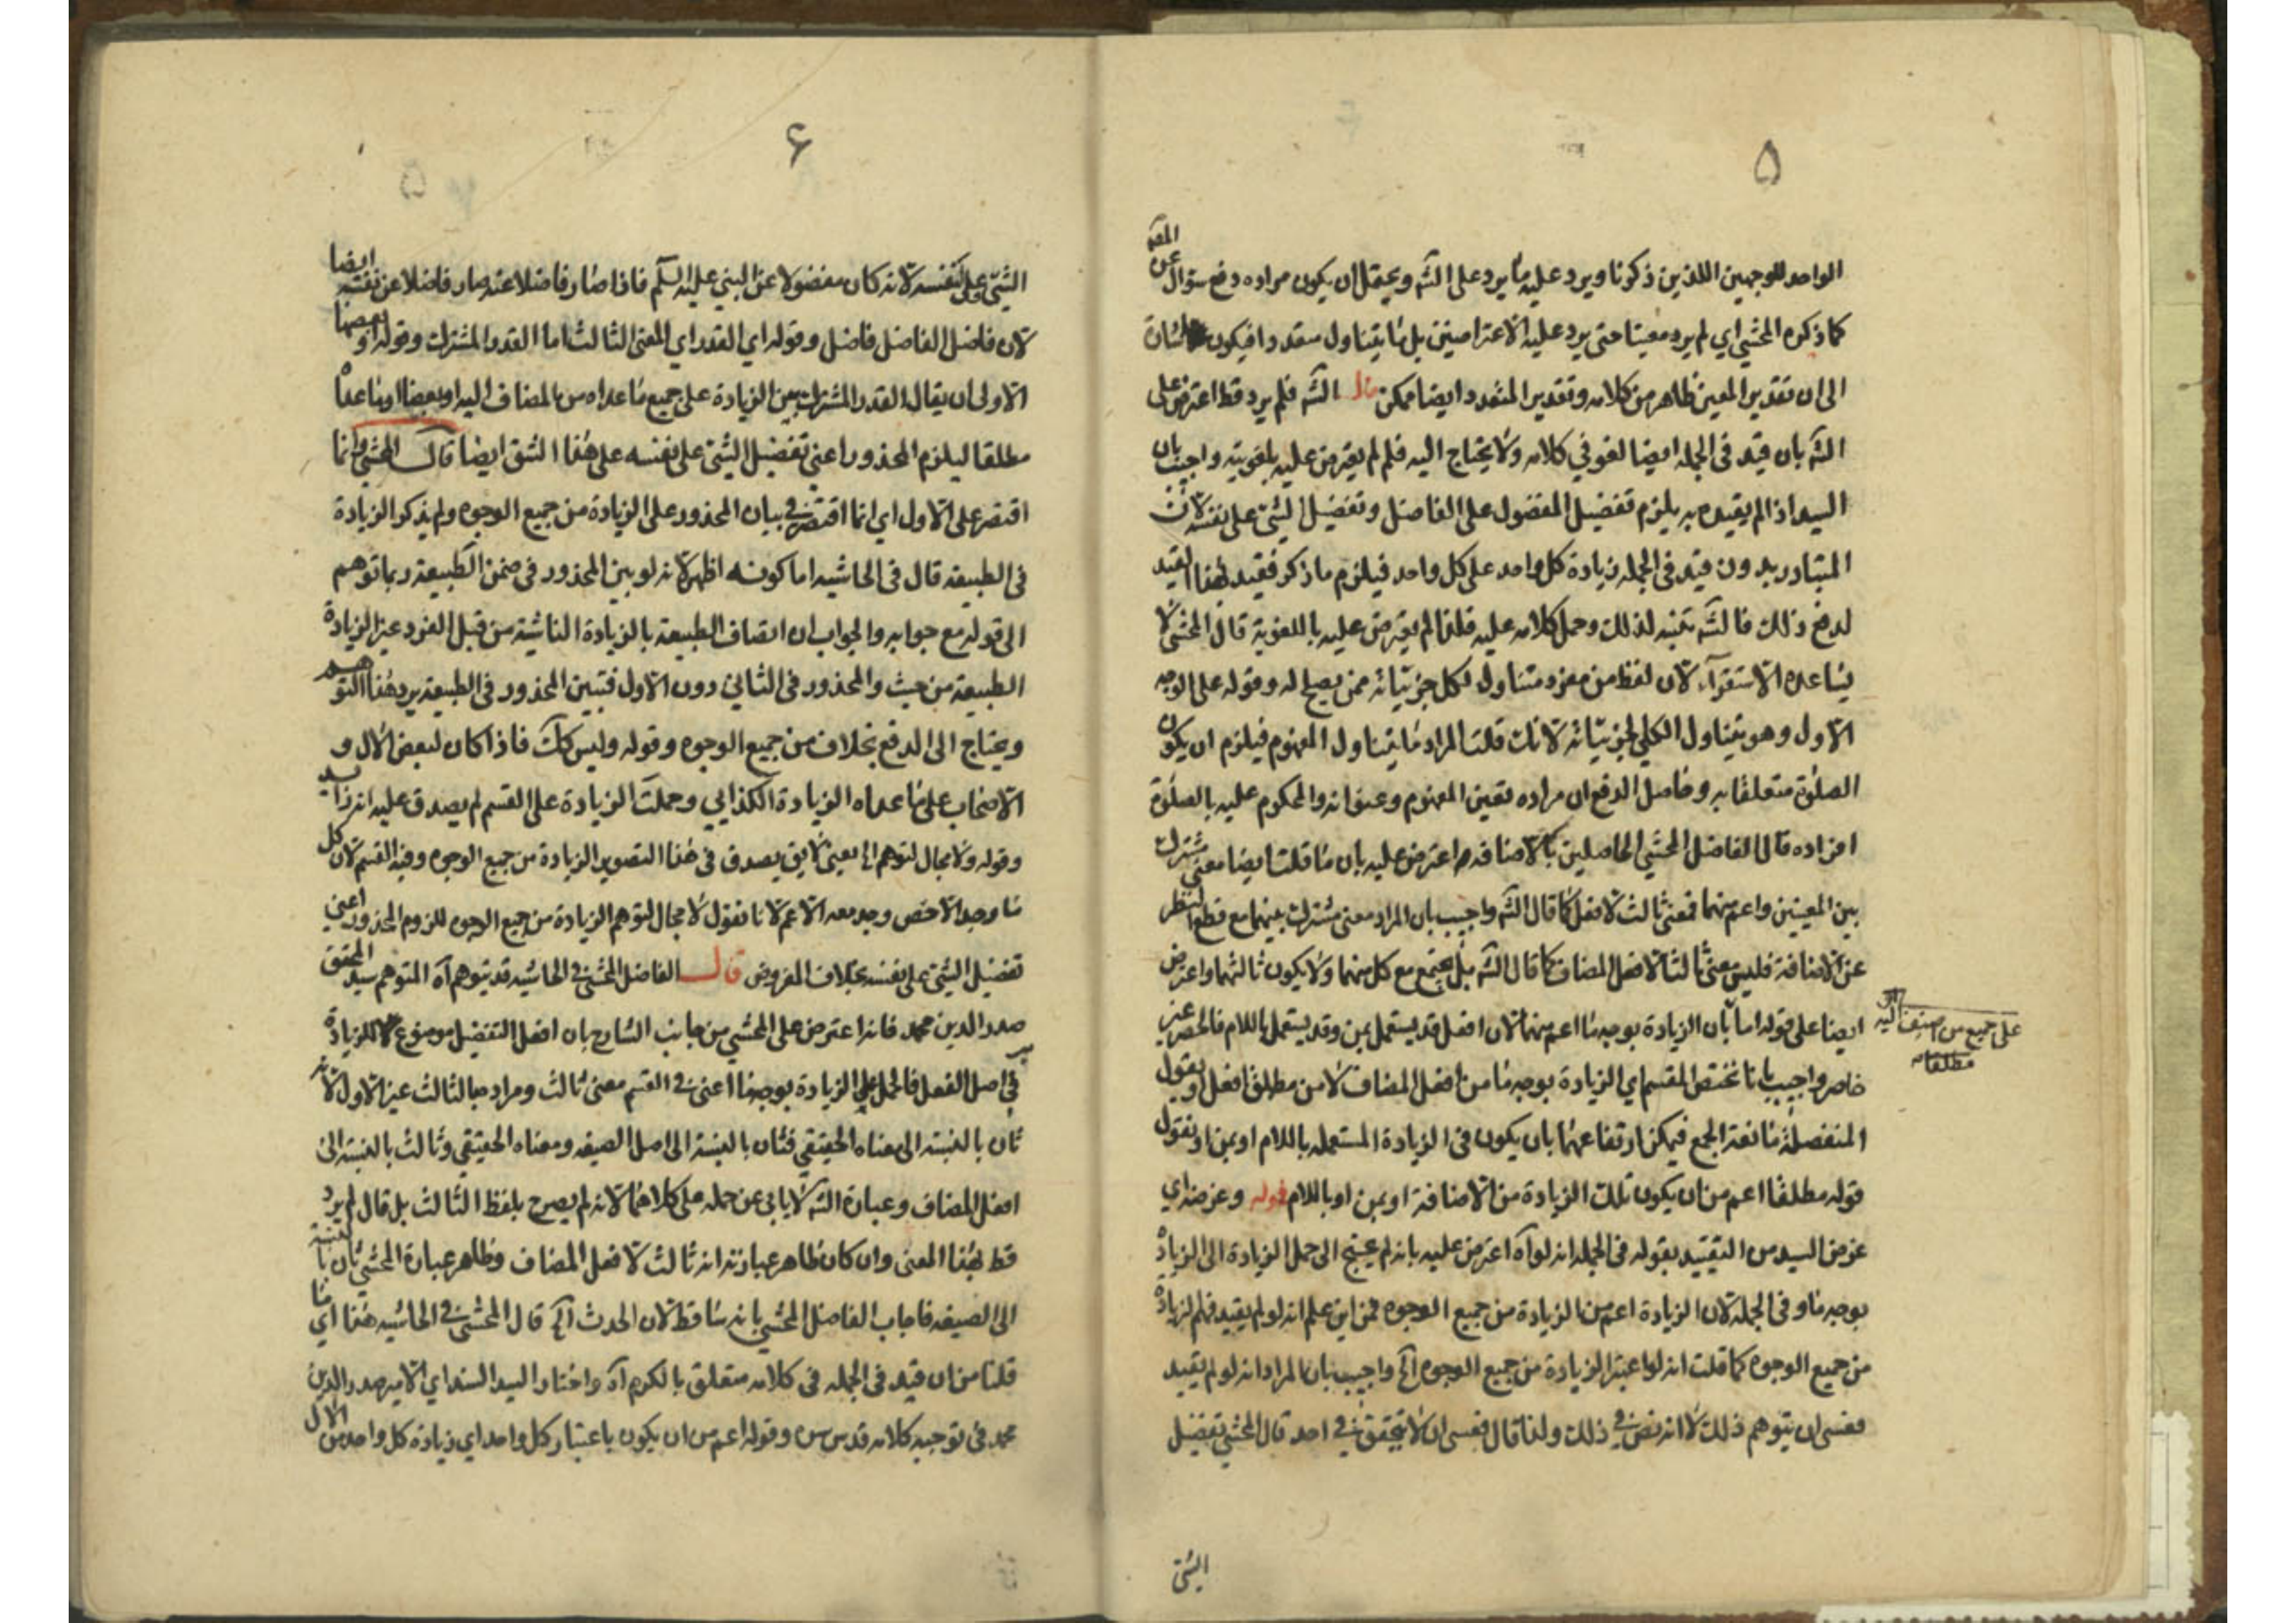 ۵
الواحد للوجهين اللذين ذكرنا ويرد عليه ما يرد على الشه ويحتمل ان يكون مراده دفع سؤال عن المقه
كما ذكره المحشي اي لم يرد معينا حتى يرد عليه الاعتراضين بل ما يتناول متعددا فيكون اشارة
الى ان تقدير المعين ظاهر من كلامه وتقدير المتعدد ايضا ممكن قال الشه فلم يرد قط اعترض على
الشه بان قيد في الجمله ايضا لغو في كلامه ولا يحتاج اليه فلم لم يعترض عليه بلغويته واجيب بان
السيد اذا لم يقيده به يلزم تفضيل المفضول على الفاضل وتفضيل الشئ على نفسه لان
المتبادر بدون قيد في الجمله زيادة كل واحد على كل واحد فيلزم ما ذكر فقيد بهذا القيد
لدفع ذلك فالشه تنبه لذلك وحمل كلامه عليه فلذا لم يعترض عليه باللغوية قال المحشي لا
يساعده الاستقراء لان لفظ من مفرد متناول لكل جزئياته ممن يصلح له وقوله على الوجه
الاول وهو يتناول الكلي لجزئياته لانك قلت المراد ما يتناول المفهوم فيلزم ان يكون
الصلوة متعلقا به وحاصل الدفع ان مراده تعين المفهوم وعنوانه والمحكوم عليه بالصلوة
افراده قال الفاضل المحشي الحاصلين بالاضافه اعترض عليه بان ما قلت ايضا معنى مشترك
بين المعنيين واعم منهما فمعنى ثالث لافعل كما قال الشه واجيب بان المراد معنى مشترك بينهما مع قطع النظر
عن الاضافة فليس معنى ثالثا لافعل المضاف كما قال الشه بل يجتمع مع كل منهما ولا يكون ثالثهما واعترض
ايضا على قوله اما بان الزيادة بوجه ما اعم منهما لان افعل قد يستعمل بمن وقد يستعمل باللام فالحصر غير
حاصر واجيب بانا نختص المقسم اي الزيادة بوجه ما من افعل المضاف لا من مطلق افعل او يقول
المنفصلة مانعة الجمع فيمكن ارتفاعهما بان يكون في الزيادة المستعمله باللام او بمن او نقول
قوله مطلقا اعم من ان يكون تلك الزيادة من الاضافة او بمن او باللام قوله وغرضه اي
غرض السيد من التقييد بقوله في الجمله انه لو آه اعترض عليه بانه لم يحتج الى حمل الزيادة الى الزيادة
بوجه ما وفي الجمله لان الزيادة اعم من الزيادة من جميع الوجوه فمن اين علم انه لو لم يقيد فهم الزيادة
من جميع الوجوه كما قلت انه لو اعتبر الزيادة من جميع الوجوه الخ واجيب بان المراد انه لو لم يقيد
فعسى ان يتوهم ذلك لا انه نص في ذلك ولذا قال فعسى ان لا يتحقق في احد قال المحشي تفضيل
على جميع من اضيف اليه
مطلقا
الشئ
۶
الشئ على نفسه لانه كان مفضولا عن النبي عليه السلم فاذا صار فاضلا عنه صار فاضلا عن نفسه ايضا
لان فاضل الفاضل فاضل وقوله اي القدر اي المعنى الثالث اما القدر المشترك وقوله او بعضها
الاولى ان يقال القدر المشترك بين الزيادة على جميع ما عداه من المضاف اليه او بعضها او ما عداه
مطلقا ليلزم المحذور اعني تفضيل الشئ على نفسه على هذا الشق ايضا قال المحشي وانما
اقتصر على الاول اي انما اقتصر في بيان المحذور على الزيادة من جميع الوجوه ولم يذكر الزيادة
في الطبيعة قال في الحاشيه اما كونه اظهر لانه لو بين المحذور في ضمن الطبيعة ربما توهم
الى قوله مع جوابه والجواب ان اتصاف الطبيعة بالزيادة الناشئة من قبل الفرد غير الزيادة
الطبيعة من حيث والمحذور في الثاني دون الاول فتبين المحذور في الطبيعة يرد هذا التوهم
ويحتاج الى الدفع بخلاف من جميع الوجوه وقوله وليس كك فاذا كان لبعض الال و
الاصحاب على ما عداه الزيادة الكذايي وحملت الزيادة على القسم لم يصدق عليه انه زايد
وقوله ولا مجال لتوهم الخ يعني لا يق يصدق في هذا التصوير الزيادة من جميع الوجوه وفيه القسم لان كل
ما وجد الاخص وجد معه الاعم لانا نقول لا مجال لتوهم الزيادة من جميع الوجوه للزوم المحذور اعني
تفضيل الشئ على نفسه بخلاف المفروض قال الفاضل المحشي في الحاشيه قد يتوهم آه المتوهم سيد المحقق
صدر الدين محمد فانه اعترض على المحشي من جانب الشارح بان افعل التفضيل موضوع للزيادة
في اصل الفعل فالحمل على الزيادة بوجه ما اعني في القسم معنى ثالث ومراده بالثالث غير الاول لانه
ثان بالنسبة الى معناه الحقيقي فثان بالنسبة الى اصل الصيغه ومعناه الحقيقي وثالث بالنسبة الى
افعل المضاف وعبارة الشه لا يابى عن حمله على كلاهما لانه لم يصرح بلفظ الثالث بل قال لم يرد
قط لهذا المعنى وان كان ظاهر عبارته انه ثالث لافعل المضاف وظاهر عبارة المحشي ثان بالنسبة
الى الصيغه فاجاب الفاضل المحشي بانه ساقط لان الحدث الخ قال المحشي في الحاشيه هذا اي ما
قلنا من ان قيد في الجمله في كلامه متعلق بالكرم آه واختار السيد السند اي الامير صدر الدين
محمد في توجيه كلامه قدس سره وقوله اعم من ان يكون باعتبار كل واحد اي زيادة كل واحد من الال